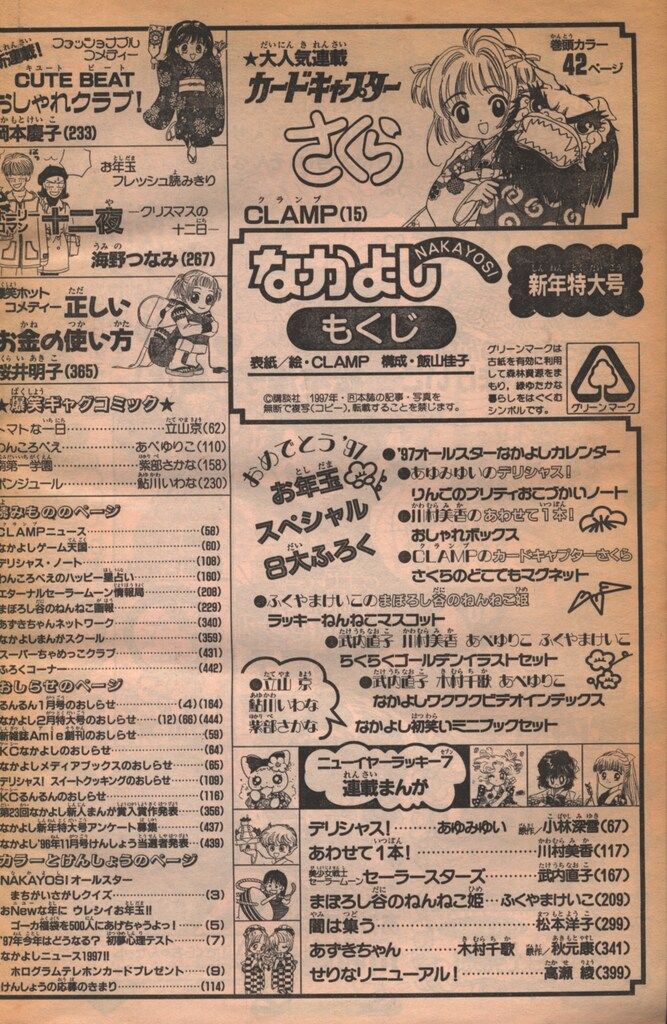 ★大人気連載
カードキャプター
さくら
CLAMP(15)
巻頭カラー
42ページ
新連載!
ファッショナブル
コメディー
CUTE BEAT
おしゃれクラブ!
岡本慶子(233)
お年玉
フレッシュ読みきり
十二夜
―クリスマスの
十二日―
海野つなみ(267)
爆笑ホット
コメディー
正しい
お金の使い方
桜井明子(365)
なかよし
NAKAYOSI
新年特大号
もくじ
表紙/絵・CLAMP 構成・飯山佳子
©講談社 1997年・本誌の記事・写真を
無断で複写(コピー)、転載することを禁じます。
グリーンマークは
古紙を有効に利用
して森林資源をま
もり、緑ゆたかな
暮らしをはぐくむ
シンボルです。
グリーンマーク
★爆笑ギャグコミック★
トマトな一日……立山京(62)
わんころべえ……あべゆりこ(110)
南第一学園……紫部さかな(158)
ボンジュール……鮎川いわな(230)
読みもののページ
CLAMPニュース……(58)
なかよしゲーム天国……(60)
デリシャス・ノート……(108)
わんころべえのハッピー星占い……(160)
エターナルセーラームーン情報局……(208)
まぼろし谷のねんねこ画報……(229)
あずきちゃんネットワーク……(340)
なかよしまんがスクール……(359)
スーパーちゃめっこクラブ……(431)
ふろくコーナー……(442)
おしらせのページ
るんるん1月号のおしらせ……(4)(164)
なかよし2月特大号のおしらせ……(12)(66)(444)
新雑誌Amie創刊のおしらせ……(59)
KCなかよしのおしらせ……(64)
なかよしメディアブックスのおしらせ……(65)
デリシャス!スイートクッキングのおしらせ……(109)
KCるんるんのおしらせ……(116)
第23回なかよし新人まんが賞入賞作発表……(356)
なかよし新年特大号アンケート募集……(437)
なかよし'96年11月号けんしょう当選者発表……(439)
カラーとけんしょうのページ
NAKAYOSIオールスター
まちがいさがしクイズ……(3)
おNewな年に ウレシイお年玉!!
ゴーカ福袋を500人にあげちゃうよっ!……(5)
'97年今年はどうなる? 初夢心理テスト……(7)
なかよしニュース1997!!
ホログラムテレホンカードプレゼント……(9)
けんしょうの応募のきまり……(114)
おめでとう'97
お年玉
スペシャル
8大ふろく
●'97オールスターなかよしカレンダー
●あゆみゆいのデリシャス!
りんごのプリティおこづかいノート
●川村美香のあわせて1本!
おしゃれボックス
●CLAMPのカードキャプターさくら
さくらのどこでもマグネット
●ふくやまけいこのまぼろし谷のねんねこ姫
ラッキーねんねこマスコット
●武内直子 川村美香 あべゆりこ ふくやまけいこ
らくらくゴールデンイラストセット
●武内直子 木村千歌 あべゆりこ
なかよしワクワクビデオインデックス
●立山京
鮎川いわな
紫部さかな
なかよし初笑いミニブックセット
ニューイヤーラッキー7
連載まんが
デリシャス!……あゆみゆい 原作/小林深雪(67)
あわせて1本!……川村美香(117)
美少女戦士
セーラームーン
セーラースターズ……武内直子(167)
まぼろし谷のねんねこ姫……ふくやまけいこ(209)
闇は集う……松本洋子(299)
あずきちゃん……木村千歌 原作/秋元康(341)
せりなリニューアル!……高瀬綾(399)